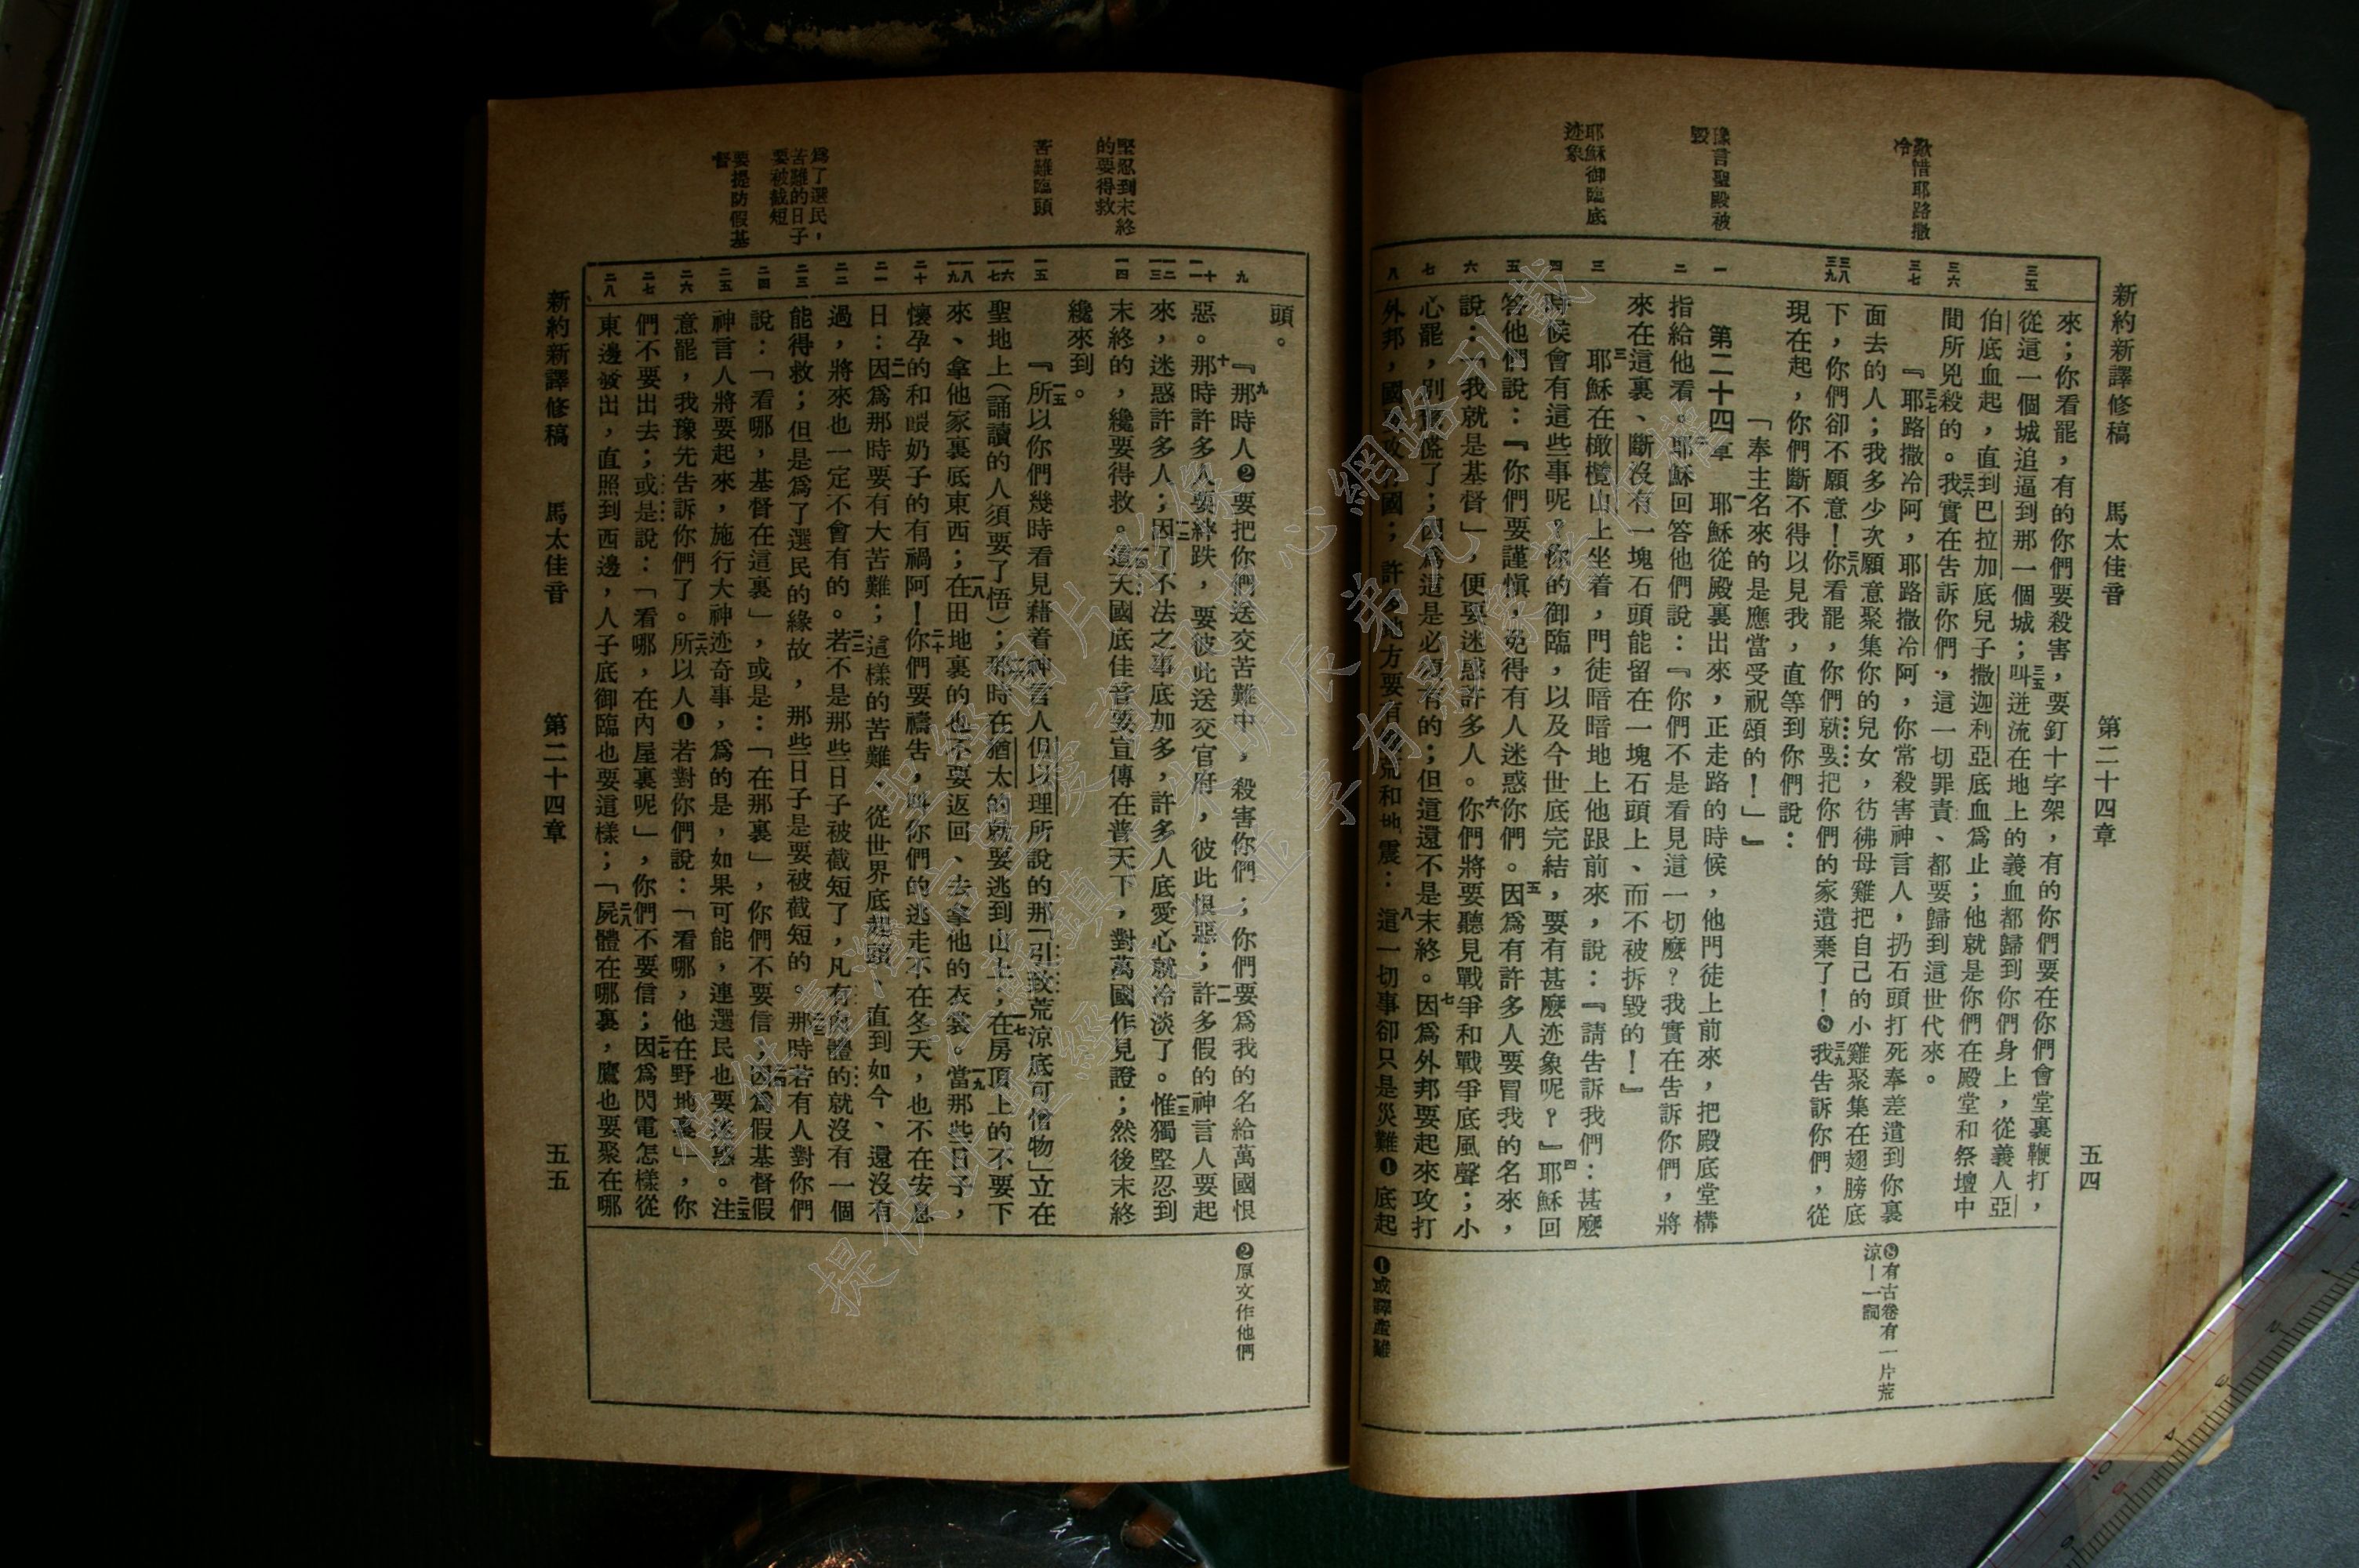 新約新譯修稿　馬太佳音　第二十四章　五四
歎惜耶路撒
冷
豫言聖殿被
毀
耶穌御臨底
迹象
三五
三六
三七
三八
三九
一
二
三
四
五
六
七
八
來；你看罷，有的你們要殺害，要釘十字架，有的你們要在你們會堂裏鞭打，
從這一個城追逼到那一個城；三五叫迸流在地上的義血都歸到你們身上，從義人亞
伯底血起，直到巴拉加底兒子撒迦利亞底血爲止；他就是你們在殿堂和祭壇中
間所兇殺的。三六我實在告訴你們，這一切罪責、都要歸到這世代來。
『三七耶路撒冷阿，耶路撒冷阿，你常殺害神言人，扔石頭打死奉差遣到你裏
面去的人；我多少次願意聚集你的兒女，彷彿母雞把自己的小雞聚集在翅膀底
下，你們卻不願意！三八你看罷，你們就要把你們的家遺棄了！❽三九我告訴你們，從
現在起，你們斷不得以見我，直等到你們說：
「奉主名來的是應當受祝頌的！」』
第二十四章　一耶穌從殿裏出來，正走路的時候，他門徒上前來，把殿底堂構
指給他看。二耶穌回答他們說：『你們不是看見這一切麼？我實在告訴你們，將
來在這裏、斷沒有一塊石頭能留在一塊石頭上、而不被拆毀的！』
三耶穌在橄欖山上坐着，門徒暗暗地上他跟前來，說：『請告訴我們：甚麼
時候會有這些事呢？你的御臨，以及今世底完結，要有甚麼迹象呢？』四耶穌回
答他們說：『你們要謹愼，免得有人迷惑你們。五因爲有許多人要冒我的名來，
說：「我就是基督」，便要迷惑許多人。六你們將要聽見戰爭和戰爭底風聲；小
心罷，別驚慌了；因爲這是必須有的；但這還不是末終。七因爲外邦要起來攻打
外邦，國要攻打國；許多地方要有饑荒和地震：八這一切事卻只是災難❶底起
❽有古卷有一片荒
涼一詞
❶或譯產難
堅忍到末終
的要得救
苦難臨頭
爲了選民，
苦難的日子
要被截短
要提防假基
督
九
十
一一
一二
一三
一四
一五
一六
一七
一八
一九
二十
二一
二二
二三
二四
二五
二六
二七
二八
頭。
『九那時人❷要把你們送交苦難中，殺害你們；你們要爲我的名給萬國恨
惡。十那時許多人要絆跌，要彼此送交官府，彼此恨惡；一一許多假的神言人要起
來，迷惑許多人；一二因了不法之事底加多，許多人底愛心就冷淡了。一三惟獨堅忍到
末終的，纔要得救。一四這天國底佳音要宣傳在普天下，對萬國作見證；然後末終
纔來到。
『一五所以你們幾時看見藉着神言人但以理所說的那「引致荒涼底可憎物」立在
聖地上（誦讀的人須要了悟）；一六那時在猶太的就要逃到山上；一七在房頂上的不要下
來、拿他家裏底東西；一八在田地裏的也不要返回、去拿他的衣裳。一九當那些日子，
懷孕的和喂奶子的有禍阿！二十你們要禱告，叫你們的逃走不在冬天，也不在安息
日：二一因爲那時要有大苦難；這樣的苦難、從世界底起頭、直到如今、還沒有
過，將來也一定不會有的。二二若不是那些日子被截短了，凡有肉體的就沒有一個
能得救；但是爲了選民的緣故，那些日子是要被截短的。二三那時若有人對你們
說：「看哪，基督在這裏」，或是：「在那裏」，你們不要信；二四因爲假基督假
神言人將要起來，施行大神迹奇事，爲的是，如果可能，連選民也要迷惑。二五注
意罷，我豫先告訴你們了。二六所以人❶若對你們說：「看哪，他在野地裏」，你
們不要出去；或是說：「看哪，在內屋裏呢」，你們不要信；二七因爲閃電怎樣從
東邊發出，直照到西邊，人子底御臨也要這樣；二八「屍體在哪裏，鷹也要聚在哪
❷原文作他們
新約新譯修稿　馬太佳音　第二十四章　五五